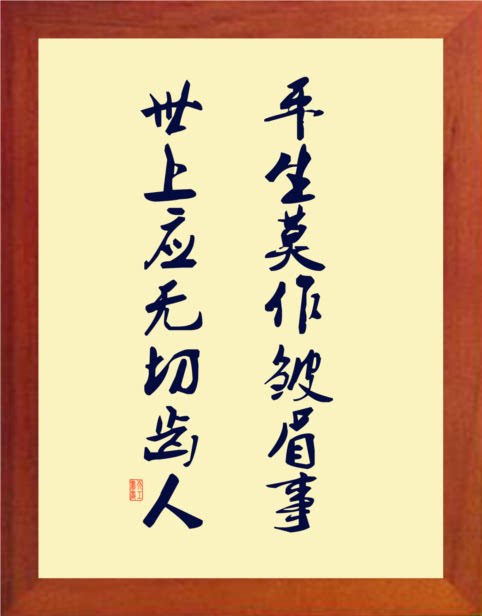 平生莫作皱眉事
世上应无切齿人